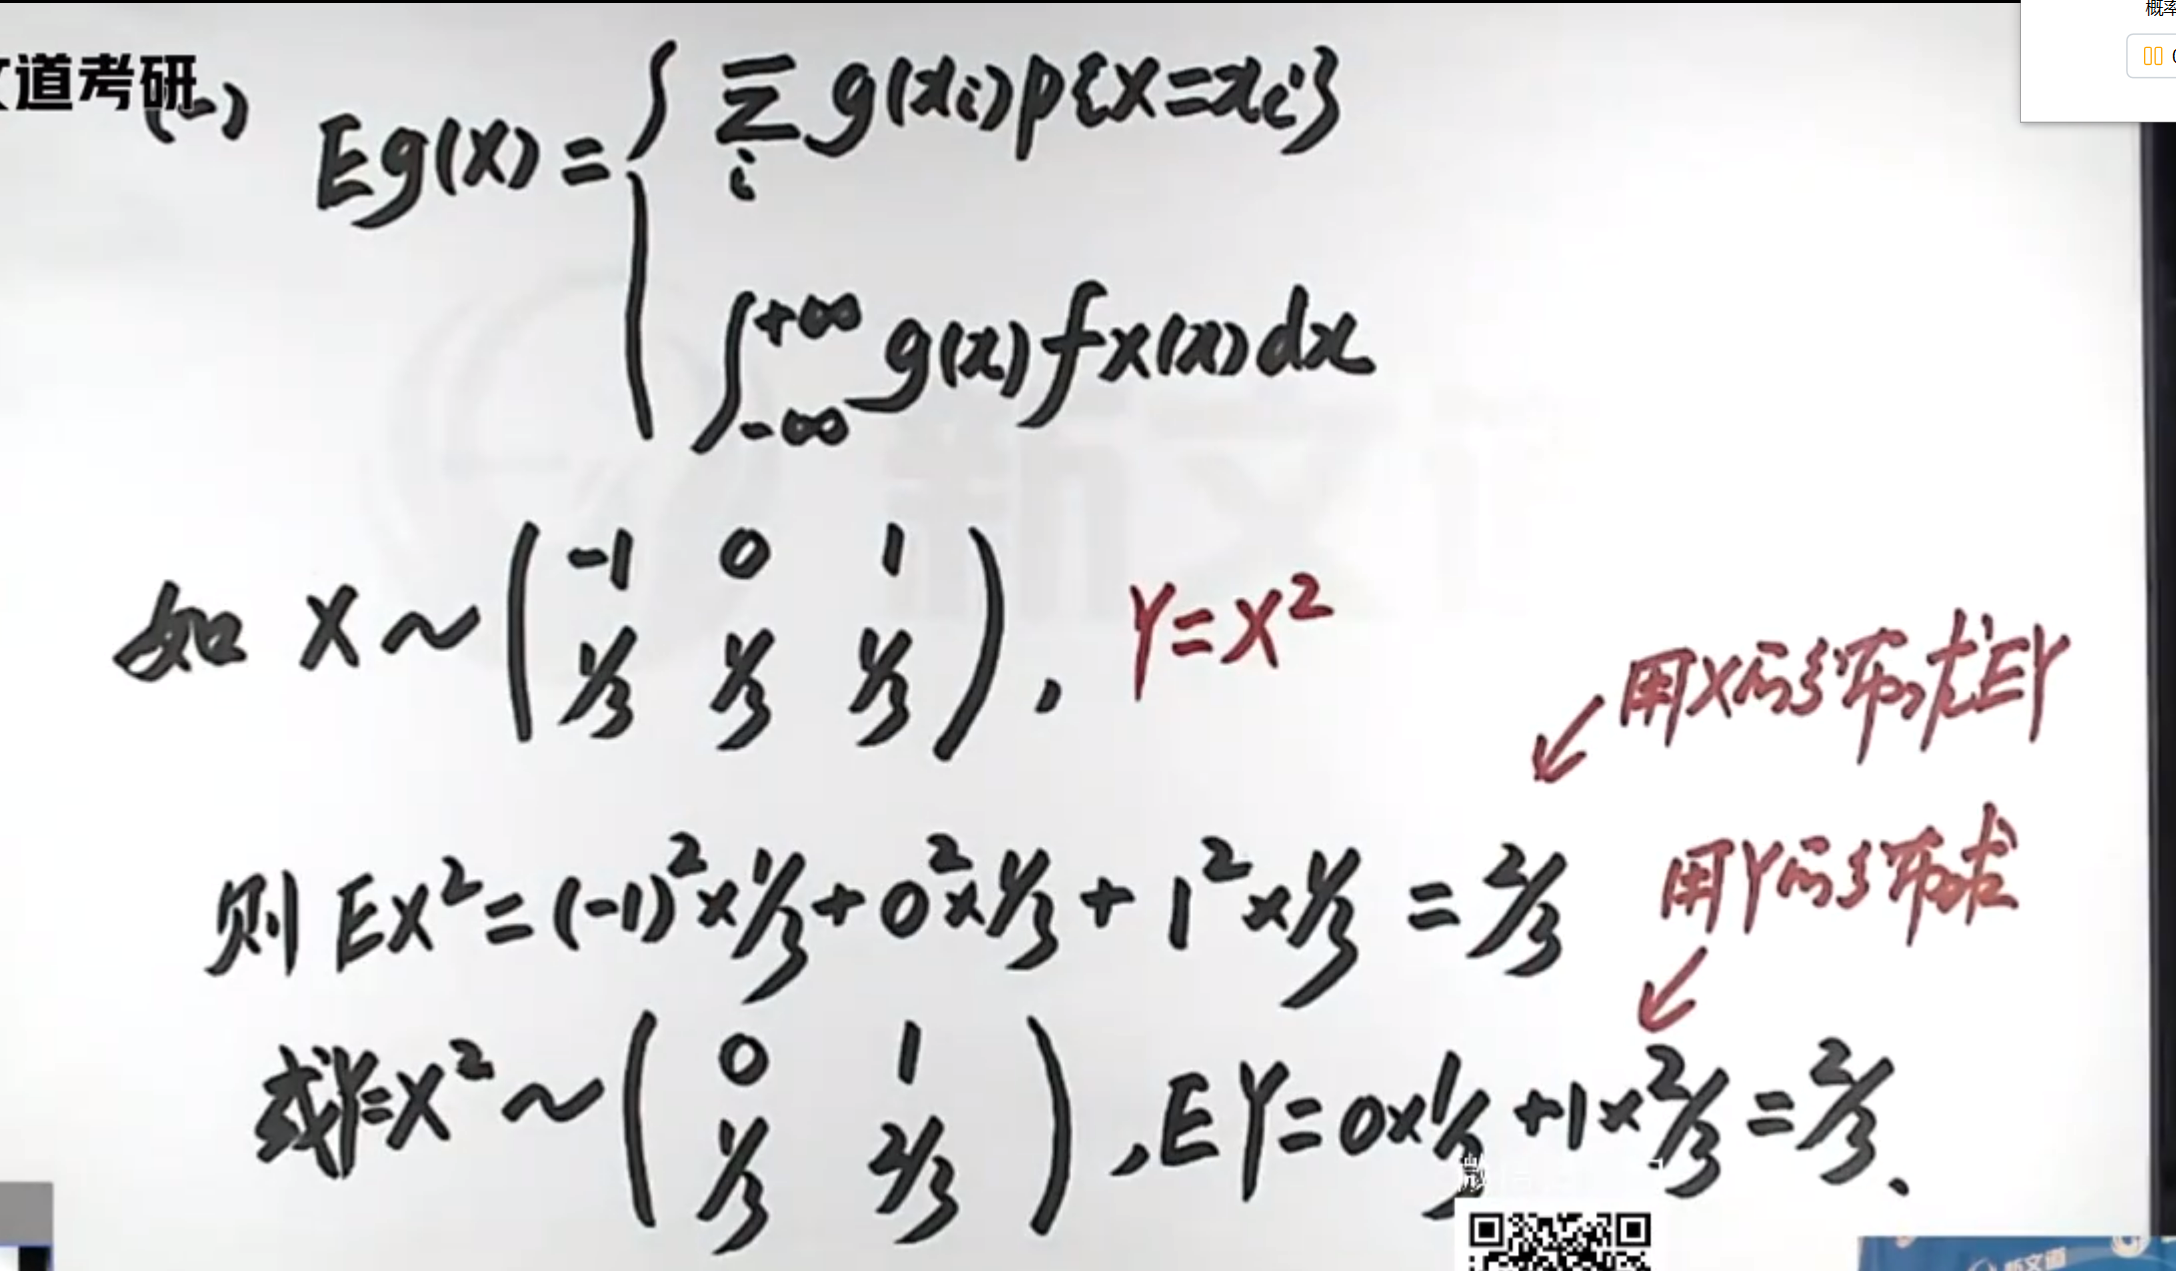 概率
文道考研
(一)
Eg(X)= { ∑i g(xi)p{X=xi}
∫-∞+∞ g(x)fX(x)dx
如 X~ ( -1 0 1
1/3 1/3 1/3 ), Y=X²
用X的分布求EY
则 EX²=(-1)²×1/3+0²×1/3+1²×1/3=2/3
用Y的分布求
或Y=X²~ ( 0 1
1/3 2/3 ), EY=0×1/3+1×2/3=2/3.
新文道